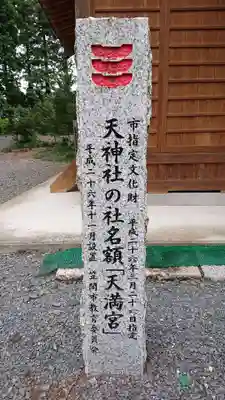 市指定文化財　平成二十六年三月二十八日指定
天神社の社名額「天満宮」
平成二十六年十一月設置　笠間市教育委員会